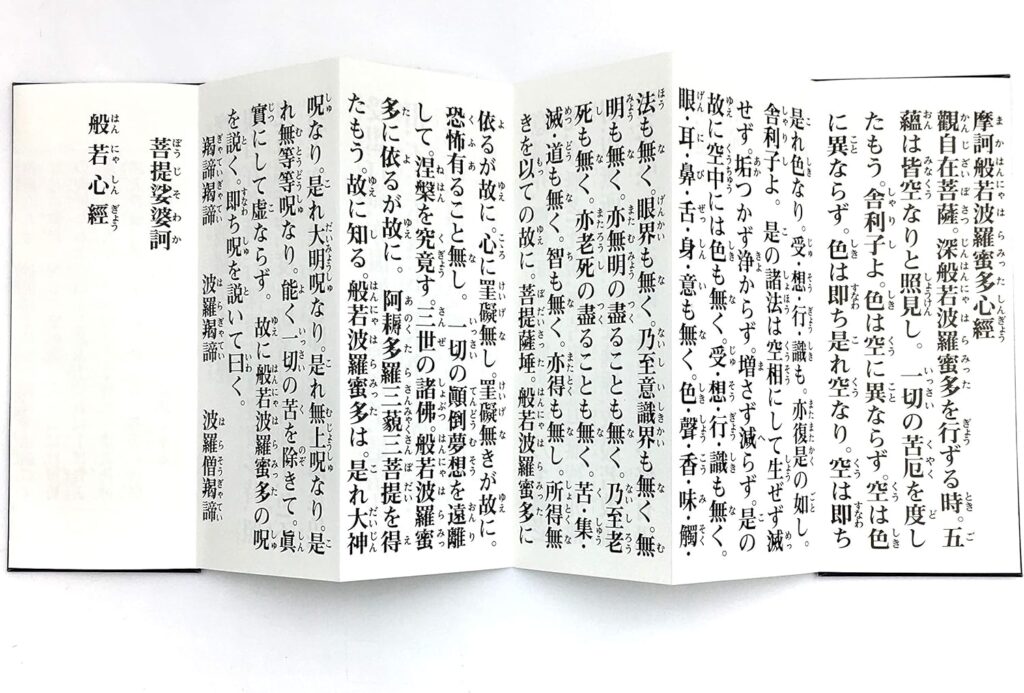 摩訶般若波羅蜜多心經
觀自在菩薩。深般若波羅蜜多を行ずる時。五
蘊は皆空なりと照見し。一切の苦厄を度し
たもう。舍利子よ。色は空に異ならず。空は色
に異ならず。色は即ち是れ空なり。空は即ち
是れ色なり。受・想・行・識も。亦復是の如し。
舍利子よ。是の諸法は空相にして生ぜず滅
せず。垢つかず浄からず。増さず減らず。是の
故に空中には色も無く。受・想・行・識も無く。
眼・耳・鼻・舌・身・意も無く。色・聲・香・味・觸・
法も無く。眼界も無く。乃至意識界も無く。無
明も無く。亦無明の盡ることも無く。乃至老
死も無く。亦老死の盡ることも無く。苦・集・
滅・道も無く。智も無く。亦得も無し。所得無
きを以ての故に。菩提薩埵。般若波羅蜜多に
依るが故に。心に罣礙無し。罣礙無きが故に。
恐怖有ること無し。一切の顚倒夢想を遠離
して。涅槃を究竟す。三世の諸佛。般若波羅蜜
多に依るが故に。阿耨多羅三藐三菩提を得
たもう。故に知る。般若波羅蜜多は。是れ大神
呪なり。是れ大明呪なり。是れ無上呪なり。是
れ無等等呪なり。能く一切の苦を除きて。眞
實にして虚ならず。故に般若波羅蜜多の呪
を説く。即ち呪を説いて曰く。
羯諦羯諦　波羅羯諦　波羅僧羯諦
菩提娑婆訶
般若心經